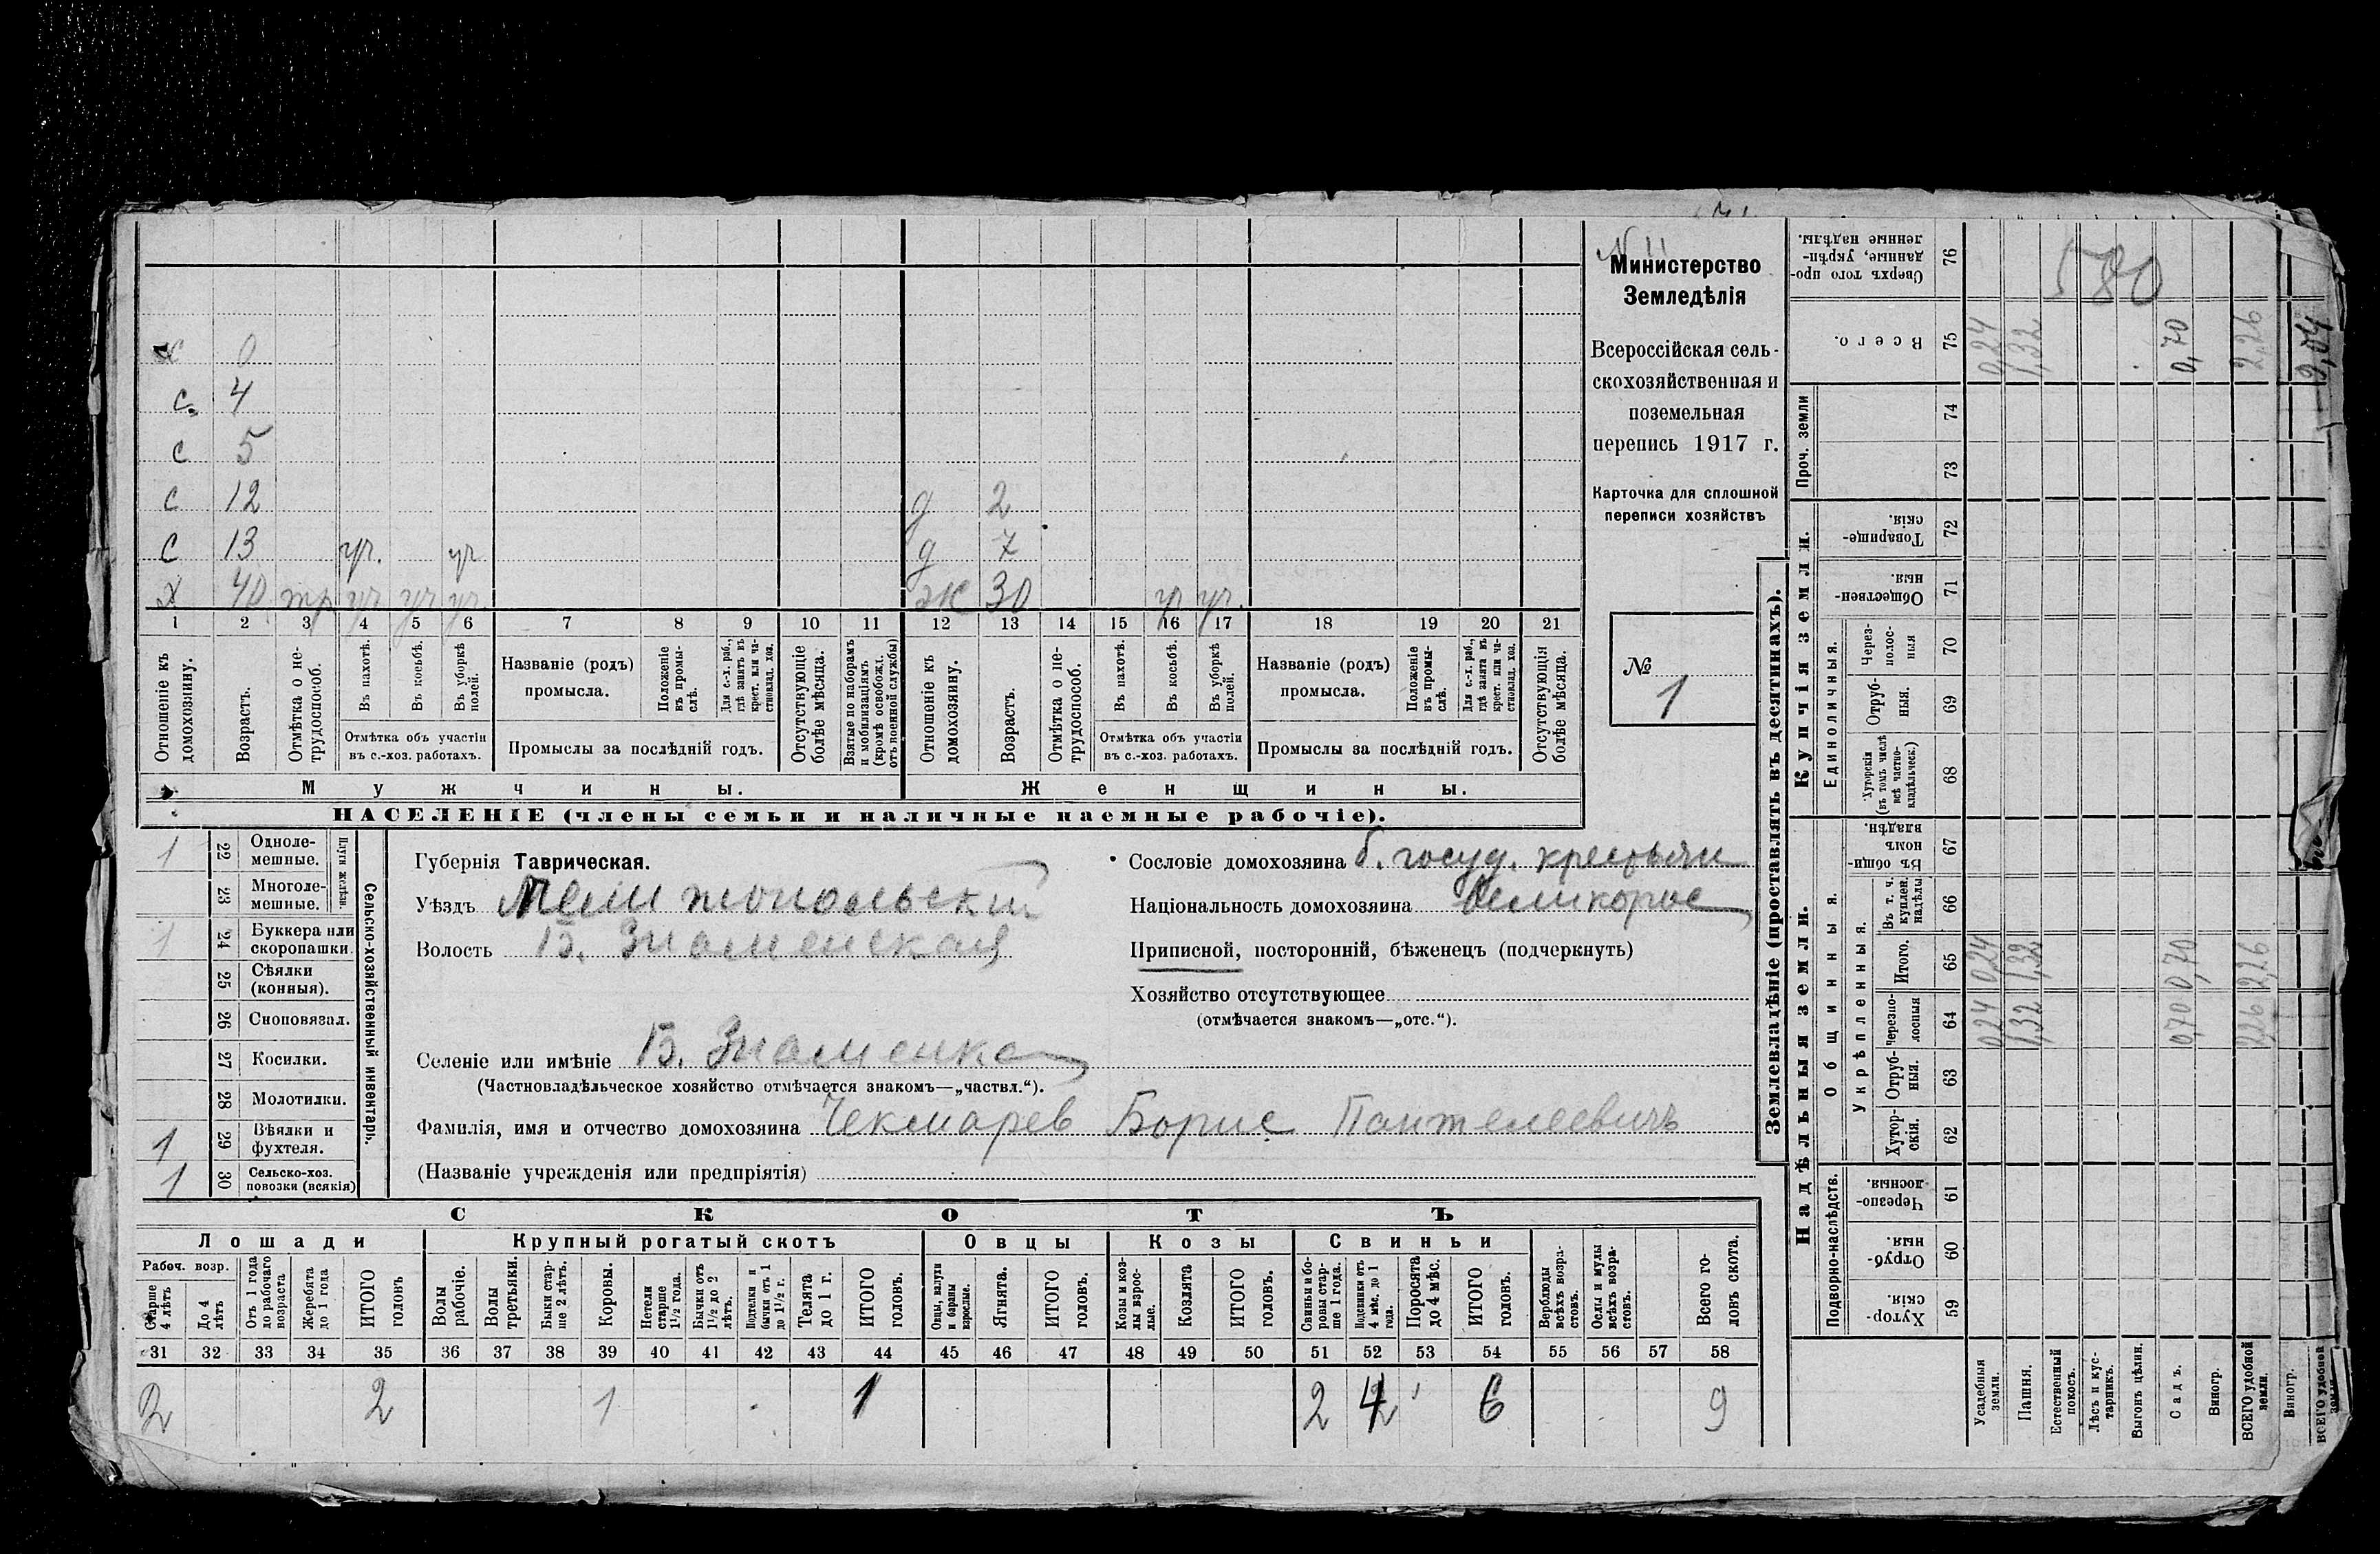 N 11
Министерство
Земледѣлія
Всероссійская сель-
скохозяйственная и
поземельная
перепись 1917 г.
Карточка для сплошной
переписи хозяйствъ
№ 1
0
с. 4
с 5
с 12 д 2
с 13 уч. уч д 7
х 40 уч уч уч. ж 30 уч уч.
1 2 3 4 5 6 7 8 9 10 11 12 13 14 15 16 17 18 19 20 21
Отношеніе къ домохозяину.
Возрастъ.
Отмѣтка о не-трудоспособ.
Въ пахотѣ.
Въ косьбѣ.
Въ уборкѣ полей.
Отмѣтка объ участіи
въ с.-хоз. работахъ.
Названіе (родъ)
промысла.
Положеніе въ промы-слѣ.
Для с.-х. раб., гдѣ занятъ въ крест. или ча-стновлад. хоз.
Промыслы за послѣдній годъ.
Отсутствующіе болѣе мѣсяца.
Взятые по наборамъ и мобилизаціямъ (кромѣ освобожд. отъ военной службы)
Отношеніе къ домохозяину.
Возрастъ.
Отмѣтка о не-трудоспособ.
Въ пахотѣ.
Въ косьбѣ.
Въ уборкѣ полей.
Отмѣтка объ участіи
въ с.-хоз. работахъ.
Названіе (родъ)
промысла.
Положеніе въ промы-слѣ.
Для с.-х. раб., гдѣ занята въ крест. или ча-стновлад. хоз.
Промыслы за послѣдній годъ.
Отсутствующія болѣе мѣсяца.
Мужчины. Женщины.
НАСЕЛЕНІЕ (члены семьи и наличные наемные рабочіе).
Сельско-хозяйственный инвентарь.
Плуги желѣзн.
1 22 Одноле-мешные.
23 Многоле-мешные.
1 24 Буккера или скоропашки.
25 Сѣялки (конныя).
26 Сноповязал.
27 Косилки.
28 Молотилки.
1 29 Вѣялки и фухтеля.
1 30 Сельско-хоз. повозки (всякія)
Губернія Таврическая.
Уѣздъ Мелитопольский
Волость Б. Знаменская
Селеніе или имѣніе Б. Знаменка
(Частновладѣльческое хозяйство отмѣчается знакомъ—„частвл.“).
Фамилія, имя и отчество домохозяина Чекмарев Борис Пантелеевичъ
(Названіе учрежденія или предпріятія)
Сословіе домохозяина б. госуд. крестьян
Національность домохозяина великорос
Приписной, посторонній, бѣженецъ (подчеркнуть)
Хозяйство отсутствующее
(отмѣчается знакомъ—„отс.“).
СКОТЪ
Лошади Крупный рогатый скотъ Овцы Козы Свиньи
Рабоч. возр.
Старше 4 лѣтъ
До 4 лѣтъ
Отъ 1 года до рабочаго возраста
Жеребята до 1 года
ИТОГО головъ
Волы рабочіе.
Волы третьяки.
Быки стар-ше 2 лѣтъ.
Коровы.
Нетели старше 1½ года.
Бычки отъ 1½ до 2 лѣтъ.
Подтелки и бычки отъ 1 до 1½ г.
Телята до 1 г.
ИТОГО головъ.
Овцы, валухи и бараны взрослые.
Ягнята.
ИТОГО головъ.
Козы и коз-лы взрос-лые.
Козлята
ИТОГО головъ.
Свиньи и бо-ровы стар-ше 1 года.
Подсвинки отъ 4 мѣс. до 1 года.
Поросята до 4 мѣс.
ИТОГО головъ.
Верблюды всѣхъ возра-стовъ.
Ослы и мулы всѣхъ возра-стовъ.
Всего го-ловъ скота.
31 32 33 34 35 36 37 38 39 40 41 42 43 44 45 46 47 48 49 50 51 52 53 54 55 56 57 58
2 2 1 1 2 4 6 9
Землевладѣніе (проставлять въ десятинахъ).
Купчія земли.
Надѣльныя земли.
Сверхъ того про-данные, укрѣп-ленные надѣлы. 76
580
Всего. 75 0,24 1,32 0,70 2,26
Проч. земли 74
73
Товарище-скія. 72
Обществен-ныя. 71
Единоличныя.
Через-полос-ныя 70
Отруб-ныя. 69
Хуторскія (въ томъ числѣ всѣ частно-владѣльческ.) 68
Общинныя.
Въ общи-номъ владѣн. 67
Укрѣпленныя.
Въ т. ч. куплен. надѣлы 66
Итого. 65 0,24 1,32 0,70 2,26
Черезпо-лосныя 64 0,24 1,32 0,70 2,26
Отруб-ныя. 63
Хутор-скія. 62
Подворно-наслѣдств.
Черезпо-лосныя. 61
Отруб-ныя. 60
Хутор-скія. 59
Усадебныя земли.
Пашня.
Естественный покосъ.
Лѣсъ и кус-тарникъ.
Выгонъ цѣлин.
Садъ.
Виногр.
ВСЕГО удобной земли.
Виногр.
ВСЕГО удобной